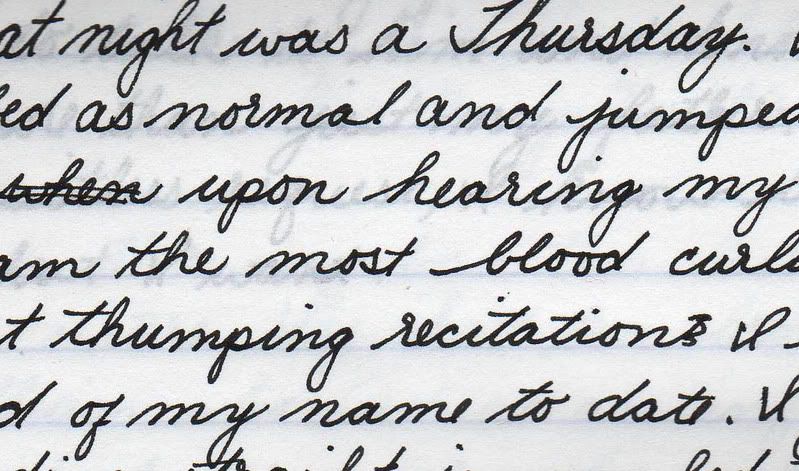 at night was a Thursday.
ed as normal and jumped
when upon hearing my
am the most blood curl
t thumping recitations I
d of my name to date. I
straight